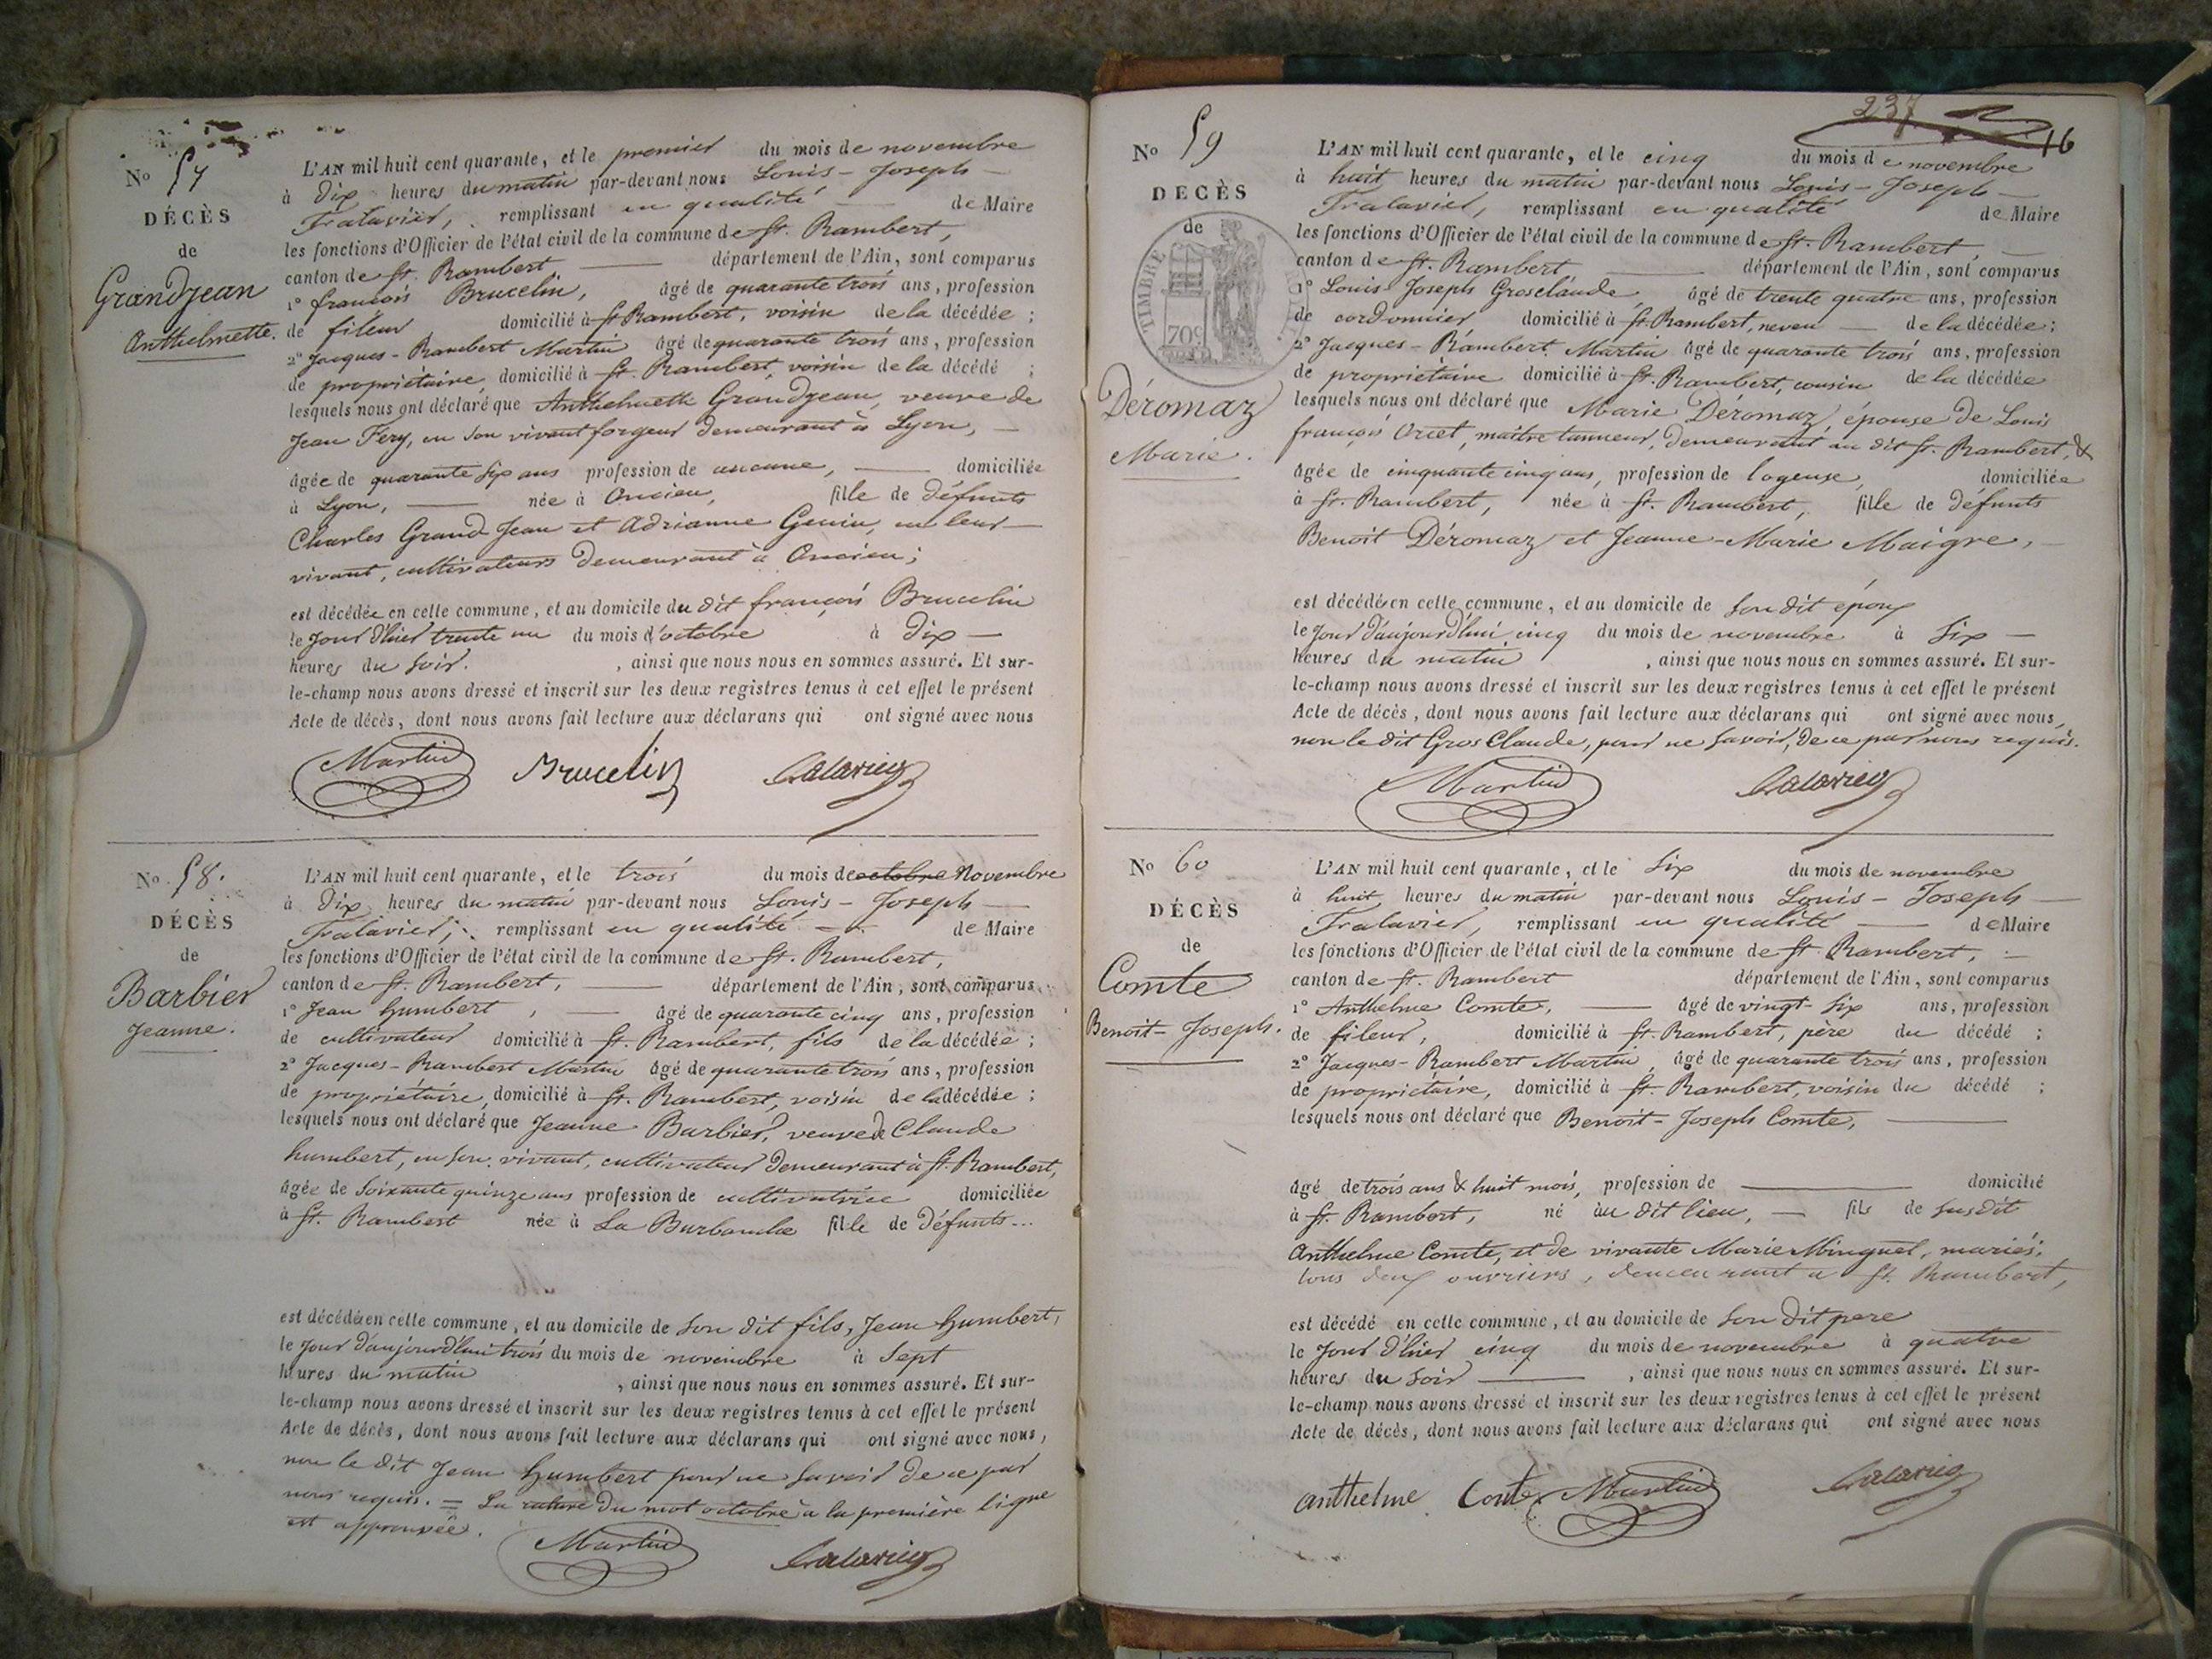 No 57
DÉCÈS
de
Grandjean
Anthelmette.
L'AN mil huit cent quarante, et le premier du mois de novembre
à dix heures du matin par-devant nous Louis-Joseph
remplissant en qualité de Maire
les fonctions d'Officier de l'état civil de la commune de St. Rambert,
canton de St. Rambert département de l'Ain, sont comparus
1° françois Brucelin, âgé de quarante trois ans, profession
de fileur domicilié à St Rambert, voisin de la décédée ;
2° Jacques-Rambert Martin âgé de quarante trois ans, profession
de propriétaire domicilié à St. Rambert, voisin de la décédé ;
lesquels nous ont déclaré que Anthelmette Grandjean, veuve de
Jean Féry, en son vivant forgeur demeurant à Lyon,
âgée de quarante six ans profession de aucune, domiciliée
à Lyon, née à Oncieu, fille de défunts
Charles Grand Jean et Adrianne Genin, en leur
vivant, cultivateurs demeurant à Oncieu ;
est décédée en cette commune, et au domicile du dit françois Brucelin
le jour d'hier trente un du mois d'octobre à dix
heures du soir. , ainsi que nous nous en sommes assuré. Et sur-
le-champ nous avons dressé et inscrit sur les deux registres tenus à cet effet le présent
Acte de décès, dont nous avons fait lecture aux déclarans qui ont signé avec nous
Martin Brucelin
No 58.
DÉCÈS
de
Barbier
Jeanne.
L'AN mil huit cent quarante, et le trois du mois de octobre Novembre
à dix heures du matin par-devant nous Louis-Joseph
remplissant en qualité de Maire
les fonctions d'Officier de l'état civil de la commune de St. Rambert,
canton de St. Rambert, département de l'Ain, sont comparus
1° Jean humbert , âgé de quarante cinq ans, profession
de cultivateur domicilié à St. Rambert, fils de la décédée ;
2° Jacques-Rambert Martin âgé de quarante trois ans, profession
de propriétaire, domicilié à St. Rambert, voisin de la décédée ;
lesquels nous ont déclaré que Jeanne Barbier, veuve de Claude
humbert, en son vivant, cultivateur demeurant à St. Rambert,
âgée de soixante quinze ans profession de cultivatrice domiciliée
à St. Rambert née à La Burbanche fille de défunts...
est décédée en cette commune, et au domicile de son dit fils, Jean humbert,
le jour d'aujourd'hui trois du mois de novembre à sept
heures du matin , ainsi que nous nous en sommes assuré. Et sur-
le-champ nous avons dressé et inscrit sur les deux registres tenus à cet effet le présent
Acte de décès, dont nous avons fait lecture aux déclarans qui ont signé avec nous,
non le dit Jean humbert pour ne savoir de ce par
nous requis. = La rature du mot octobre à la première ligne
est approuvée.
Martin
237
16
No 59
DECÈS
de
TIMBRE
70c
Déromaz
Marie.
L'AN mil huit cent quarante, et le cinq du mois de novembre
à huit heures du matin par-devant nous Louis-Joseph
remplissant en qualité de Maire
les fonctions d'Officier de l'état civil de la commune de St. Rambert,
canton de St. Rambert, département de l'Ain, sont comparus
1° Louis-Joseph Grosclaude, âgé de trente quatre ans, profession
de cordonnier domicilié à St. Rambert, neveu de la décédée ;
2° Jacques-Rambert Martin âgé de quarante trois ans, profession
de propriétaire domicilié à St. Rambert, cousin de la décédée
lesquels nous ont déclaré que Marie Déromaz, épouse de Louis
françois maître tanneur, demeurant au dit St. Rambert, &
âgée de cinquante cinq ans, profession de logeuse, domiciliée
à St. Rambert, née à St. Rambert, fille de défunts
Benoit Déromaz et Jeanne-Marie Maigre,
est décédée en cette commune, et au domicile de son dit époux
le jour d'aujourd'hui cinq du mois de novembre à six
heures du matin , ainsi que nous nous en sommes assuré. Et sur-
le-champ nous avons dressé et inscrit sur les deux registres tenus à cet effet le présent
Acte de décès, dont nous avons fait lecture aux déclarans qui ont signé avec nous,
non le dit Gros Claude, pour ne savoir, de ce par nous requis.
Martin
No 60
DÉCÈS
de
Comte
Benoit-Joseph.
L'AN mil huit cent quarante, et le six du mois de novembre
à huit heures du matin par-devant nous Louis-Joseph
remplissant en qualité de Maire
les fonctions d'Officier de l'état civil de la commune de St. Rambert,
canton de St. Rambert département de l'Ain, sont comparus
1° Anthelme Comte, âgé de vingt-six ans, profession
de fileur, domicilié à St. Rambert, père du décédé ;
2° Jacques-Rambert Martin âgé de quarante trois ans, profession
de propriétaire, domicilié à St. Rambert, voisin du décédé ;
lesquels nous ont déclaré que Benoit-Joseph Comte,
âgé de trois ans & huit mois, profession de domicilié
à St. Rambert, né au dit lieu, fils de susdit
Anthelme Comte, et de vivante Marie Minguet, mariés,
tous deux ouvriers, demeurant a St. Rambert,
est décédé en cette commune, et au domicile de son dit pere
le jour d'hier cinq du mois de novembre à quatre
heures du soir , ainsi que nous nous en sommes assuré. Et sur-
le-champ nous avons dressé et inscrit sur les deux registres tenus à cet effet le présent
Acte de décès, dont nous avons fait lecture aux déclarans qui ont signé avec nous
anthelme Conte Martin